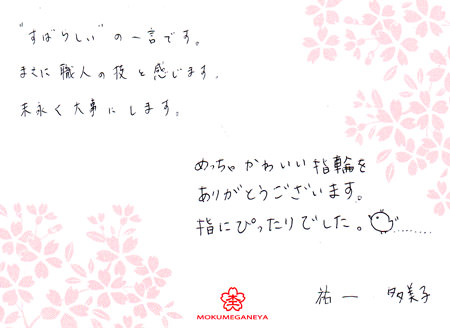 "すばらしい"の一言です。
まさに職人の技と感じます。
末永く大事にします。
めっちゃかわいい指輪を
ありがとうございます。
指にぴったりでした。
祐一 多美子
MOKUMEGANEYA